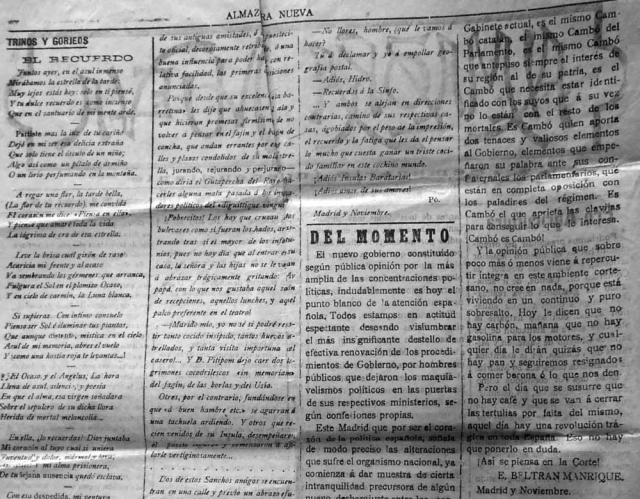 ALMAZRA NUEVA
TRINOS Y GORJEOS
EL RECUERDO
Juntos ayer, en el azul inmenso
Mirábamos la estrella de la tarde.
Muy lejos estás hoy; solo en ti piensé,
Y tu dulce recuerdo es como incienso
Que en el santuario de mi mente arde.
Partiste mas la luz de tu cariño
Dejó en mi ser esa delicia extraña
Que solo tiene el ósculo de un niño;
Algo así como un pétalo de armiño
O un lirio perfumando en la montaña.
A regar una flor, la tarde bella,
(La flor de tu recuerdo), me convida
El corazón me dice «Piensa en ella»
Y piensa que amaré toda la vida
La lágrima de oro de esa estrella.
Leve la brisa cual girón de raso
Acaricia mi frente y al acaso
Va sembrando los gérmenes que arranca,
Fulgura el Sol en el plomizo Ocaso,
Y en cielo de carmín, la Luna blanca.
Si supieras. Con íntimo consuelo
Pienso ser Sol é iluminar tus plantas,
Que aunque distante, mística en el cielo
Azul de mi memoria, abres el vuelo
Y como una hostia roja te levantas...!
¡El Ocaso, y el Angelus, La hora
Llena de azul, silencio, y poesía
En que el alma, esa virgen soñadora
Sobre el sepulcro de su dicha llora
Herida de mortal melancolía.
En ella, lo recuerdas! Dios juntaba
Mi corazón al tuyo cual si uniera
Juventud y dolor,
mi alma prisionera,
De tu alma ausencia quedó esclava.
Con esa despedida, mi ventura
de sus antiguas amistades,
oficial, decorosamente
buena influencia para poder
relativa facilidad, las primeras
anunciadas.
Porque desde que su excelencia
barretina» les dijo que ahuecasen
que hicieran promesas firmísimas
no volver a pensar en el fajín y el
concha, que andan errantes por esas
calles y plazas condolidos de su
trella, jurando, rejurando y perjurando
como diría el Gutapercha del
cerles alguna mala pasada á los
dores políticos del «diguitigue
¡Pobrecitos! Los hay que cruzan
bulevares como si fueran los hados,
trando tras sí el mayor de los infortunios,
pues no hay día que al entrar en su
casa, la señora y las hijas no se
á abrazar trágicamente gritando: Ay
papá, con lo que nos gustaba aquel
de recepciones, aquellos lunches, y aquel
palco preferente en el teatro!
—¡Marido mío, yo no sé si podré
tir tanto cocido insípido, tantos huevos
averillados, y tanta visita importuna
del casero!... Y D. Pitipom dejó caer dos
lágrimones cocodrilescos «in memoriam»
del fagín, de las borlas y del Usía.
Otros, por el contrario, fundándose en
que «á buen hambre etc.» se agarran á
una tachuela ardiendo. Y otros que
cen venidos de su Ínsula, desempeñar
fablarse vertiginosamente...
Dos de estos Sanchos amigos se encuentran
en una calle y previo un abrazo
—No llores, hombre, ¿qué le vamos á
hacer?
Tú á declamar y yo á empollar
geografía postal.
—Adiós, Hidro.
—Recuerdos á la Sinfo.
... Y ambos se alejan en direcciones
contrarias, camino de sus respectivas
casas, agobiados por el peso de la impresión,
el recuerdo y la fatiga que les da el pensar
lo mucho que cuesta ganar un triste cocido
familiar en este cochino mundo.
¡Adiós Ínsulas Baratarias!
¡Adiós ansias de sus amores!
PÓ.
Madrid y Noviembre.
DEL MOMENTO
El nuevo gobierno constituído
según pública opinión por la más
amplia de las concentraciones políticas,
indudablemente es hoy el
punto blanco de la atención española,
Todos estamos en actitud
espectante deseando vislumbrar
el más insignificante destello de
efectiva renovación de los procedimientos
de Gobierno, por hombres
públicos que dejaron los maquiavelismos
políticos en las puertas
de sus respectivos ministerios, según
confesiones propias.
Este Madrid que por ser el corazón
de la política española, señala
de modo preciso las alteraciones
que sufre el organismo nacional, ya
comienza á dar muestra de cierta
intranquilidad precursora de algún
Gabinete actual, es el mismo Cambó
catalán, el mismo Cambó del
Parlamento, es el mismo Cambó
que antepuso siempre el interés de
su región al de su patria, es el
Cambó que necesita estar identificado
con los suyos que á su vez
no lo están con el resto de los
mortales. Es Cambó quien aporta
dos tenaces y valiosos elementos
al Gobierno, elementos que empeñaron
su palabra ante sus compatronales
los parlamentarios, que
están en completa oposición con
los paladines del régimen. Es
Cambó el que aprieta las clavijas
para conseguir lo que le interesa.
¡Cambó es Cambó!
Y la opinión pública que sobre
poco más ó menos viene á repercutir
íntegra en este ambiente cortesano,
no cree en nada, porque está
viviendo en un continuo y puro
sobresalto, Hoy le dicen que no
hay carbón, mañana que no hay
gasolina para los motores, y cualquier
día le dirán quizás que no hay
pan y seguiremos resignados
á comer barona ó lo que nos den.
Pero el día que se susurre que
no hay café y que se van á cerrar
las tertulias por falta del mismo,
aquel día hay una revolución trágica
en toda España. Eso no hay
que ponerlo en duda.
¡Así se piensa en la Corte!
E. BELTRAN MANRIQUE.
Madrid y Noviembre.